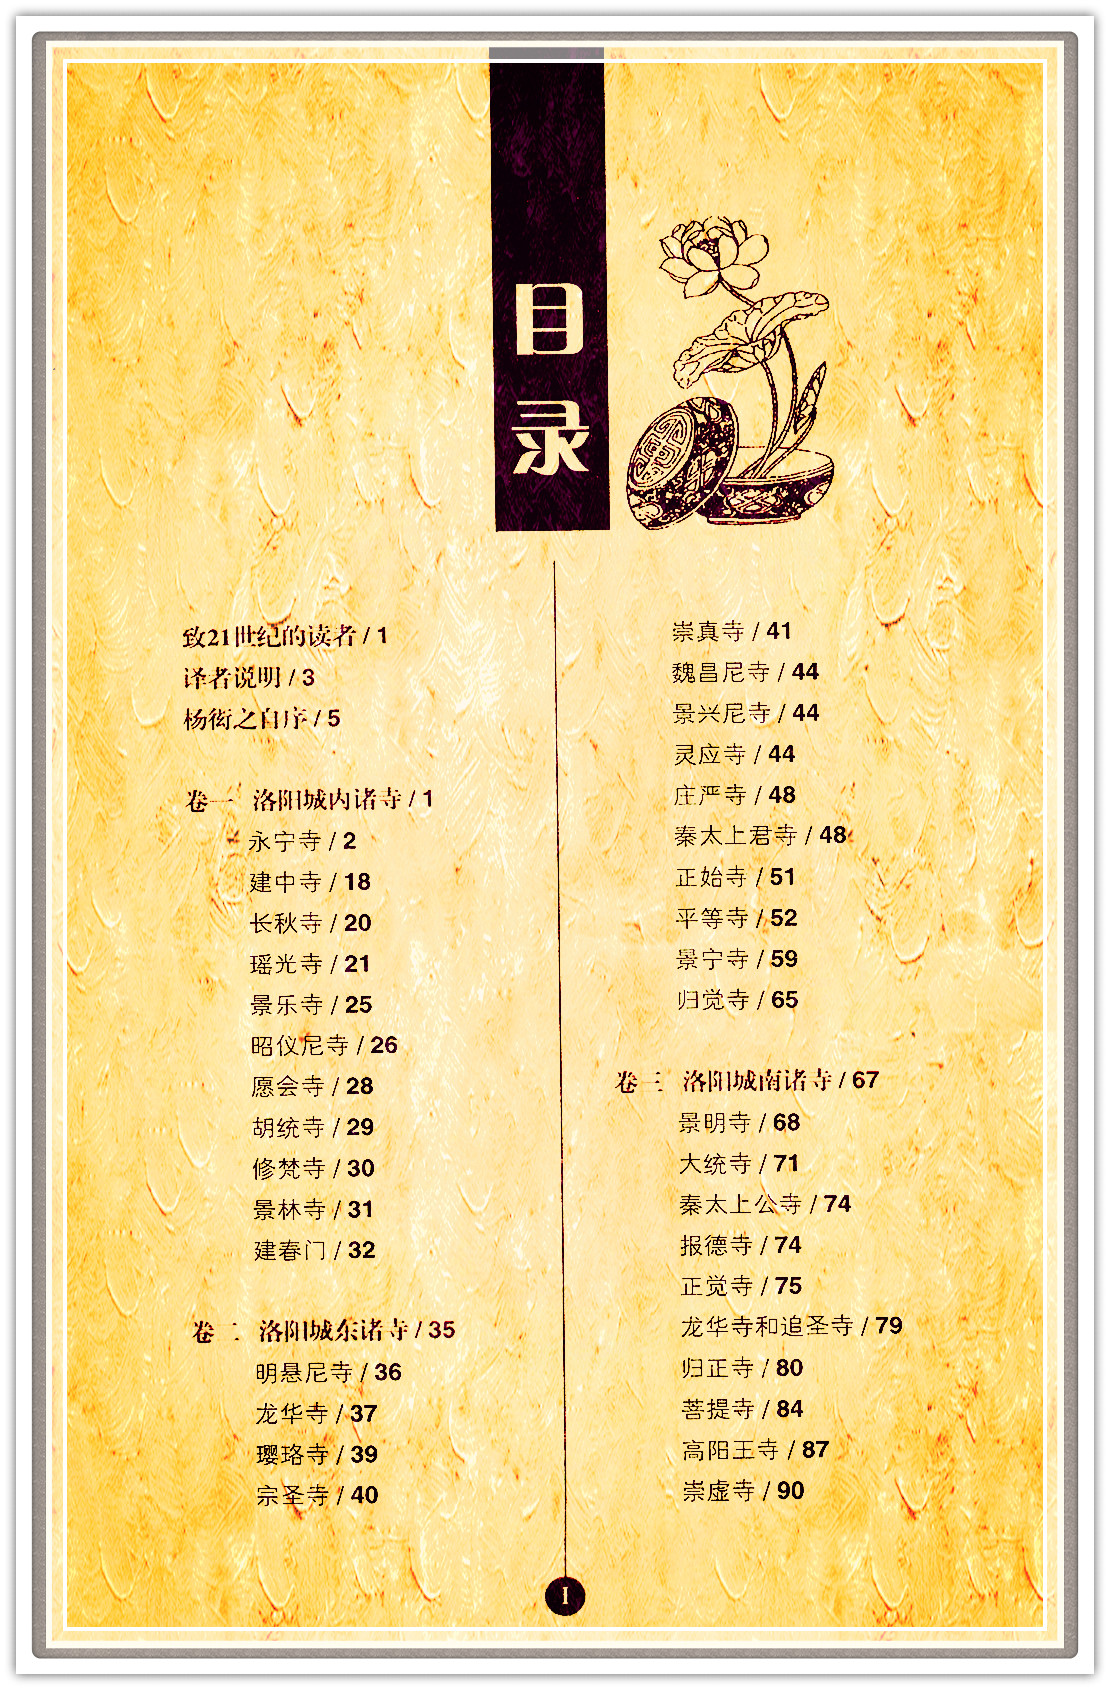 目
录
致21世纪的读者 / 1
译者说明 / 3
杨衒之自序 / 5
卷一 洛阳城内诸寺 / 1
永宁寺 / 2
建中寺 / 18
长秋寺 / 20
瑶光寺 / 21
景乐寺 / 25
昭仪尼寺 / 26
愿会寺 / 28
胡统寺 / 29
修梵寺 / 30
景林寺 / 31
建春门 / 32
卷二 洛阳城东诸寺 / 35
明悬尼寺 / 36
龙华寺 / 37
璎珞寺 / 39
宗圣寺 / 40
崇真寺 / 41
魏昌尼寺 / 44
景兴尼寺 / 44
灵应寺 / 44
庄严寺 / 48
秦太上君寺 / 48
正始寺 / 51
平等寺 / 52
景宁寺 / 59
归觉寺 / 65
卷三 洛阳城南诸寺 / 67
景明寺 / 68
大统寺 / 71
秦太上公寺 / 74
报德寺 / 74
正觉寺 / 75
龙华寺和追圣寺 / 79
归正寺 / 80
菩提寺 / 84
高阳王寺 / 87
崇虚寺 / 90
I